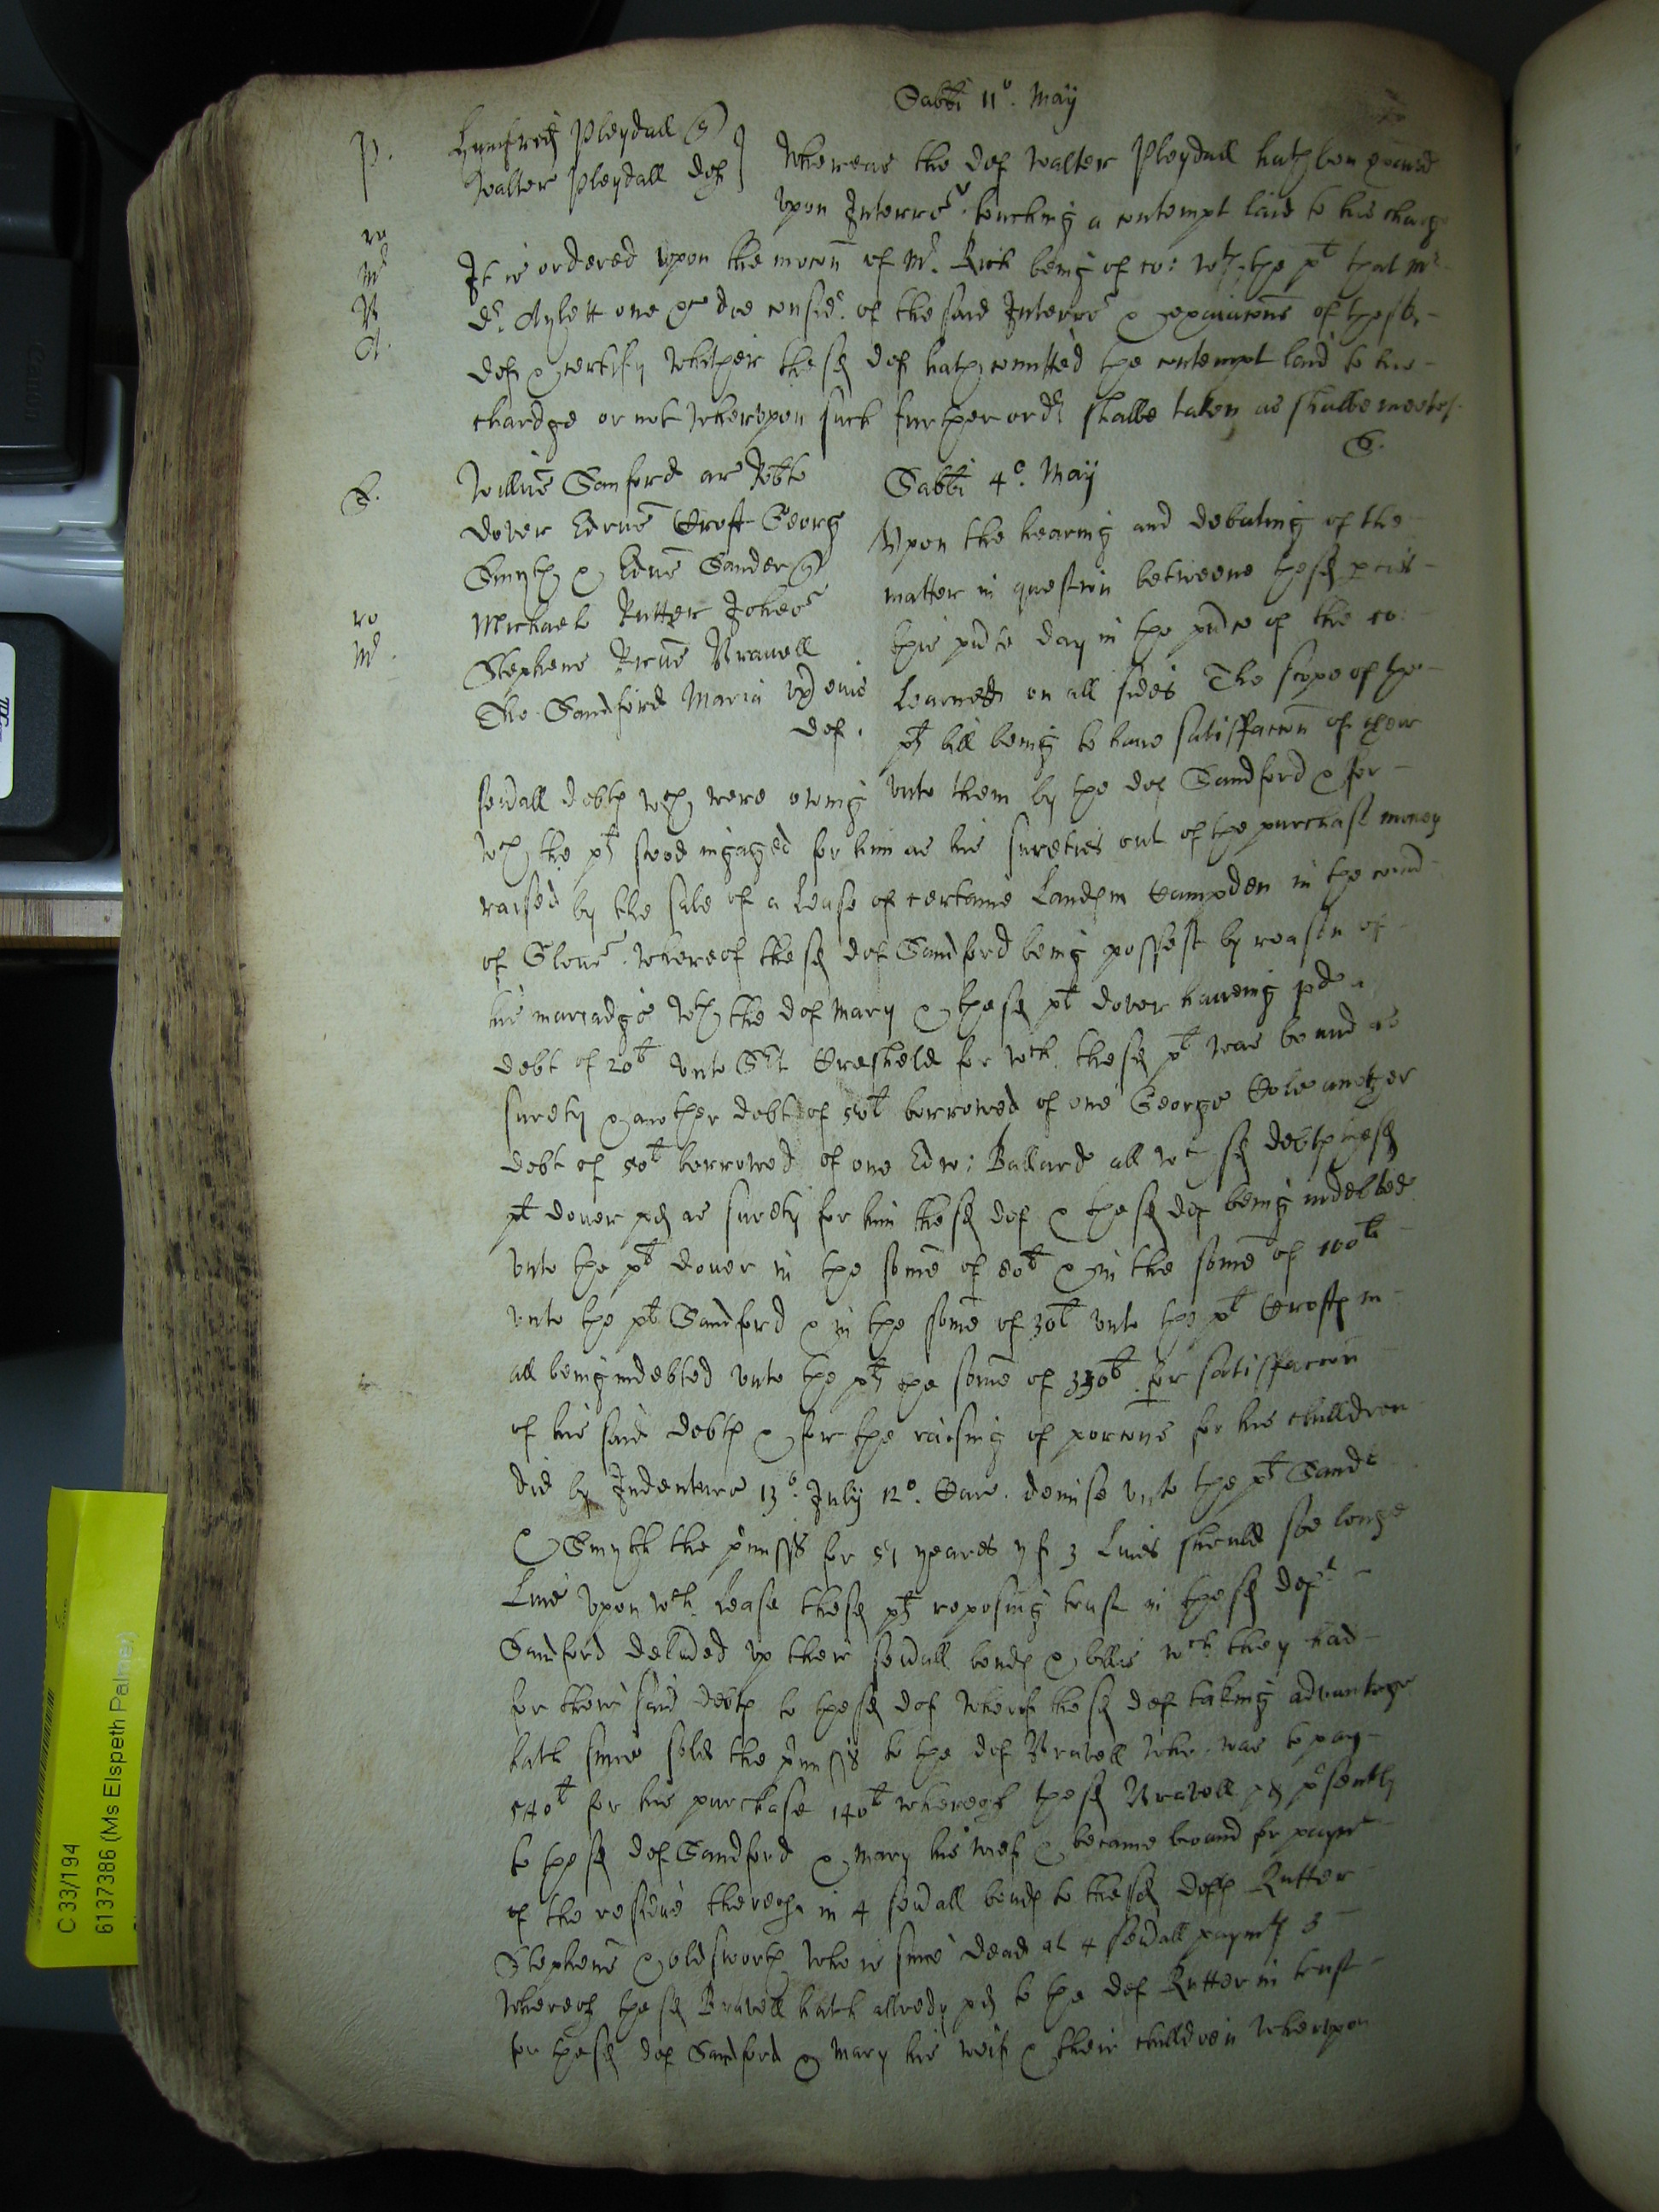 Sabbti 11º. May
P. Humfrid Pleydall q
Walter Pleydall def Whereas the def Walter Pleydall hath ben exãied
upon Interrs. touching a contempt laid to his charge
ro It is ordered upon the mocon of Mr. Rich being of co: wth the pt that Mr
Mr Dr. Aylett one &c doe consider of the said Interrs & exaiacons of the sd
def & certify whether the sd def hath comitted the contempt laid to his
chardge or not wherupon such further order shalbe taken as shalbe meete
S. Willus Sanford ar Robte
Sabbti 4º. May
Dover Edrus Croft George
Upon the hearing and debating of the
Smyth & Edus Sander q
matter in question betweene the sd pties
ro Michaele Rutter Johes
this pnte day in the pnce of the co:
Mr. Stephens Ricus Bravell
learned on all sides The scope of the
Tho. Sandford Maria Ux eius
def.
pts bill being to have satisfaccon of their
sevall debts wch were oweing unto them by the def Sandford & for
wch the pts stood ingaged for him as his sureties out of the purchase money
raised by the sale of a lease of certaine Lands in Campden in the count
of Glouc. whereof the sd def Sandford being possest by reason of
his mariadge wth the def Mary & the sd pt Dover haueing pd a
debt of 20l unto Sjt Cresheld for wch. the sd pt was bound as
surety & another debt of 50l borrowed of one George Cole another
debt of 50l borrowed of one Edw: Ballard all wch sd debts the sd
pt Dover pd as surety for him the sd def & the sd def being indebted
unto the pt Dover in the some of 80l & in the some of 100l
unto the pt Sandford & in the some of 30l unto the pt Crofts in
all being indebted unto the pts the some of 330l for satisfaccon
of his said debts & for the raising of porcons for his children
did by Indenture 13º. July 12º. Car. demise unto the pt Sandf
& Smyth the pmisses for 51 yeares yf 3 Lives should soe longe
Live upon wch. lease the sd pts reposing trust in the sd deft
Sandford delived up their sevall bonds & bills wch they had
for their said debts to the sd def wherof the sd def taking advantage
hath since sold the pmisses to the def Bravell who was to pay
540l for his purchase 140l whereof the sd Bravell pd psently
to the sd def Sandford & Mary his wief & became bound for paymt
of the residue thereof in 4 sevall bonds to the sd defts Rutter
Stephens & Oldsworth who is since dead at 4 sevall paymts 3
whereof the sd Bravell hath allredy pd to the def Rutter in trust
for the sd def Sandford & Mary his weif & their children wherupon
C 33/194
6137386 (Ms Elspeth Palmer)